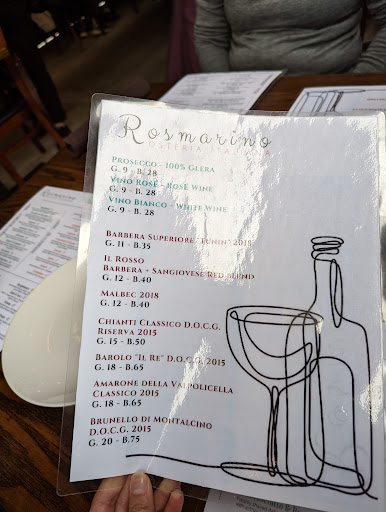 Rosmarino
OSTERIA ITALIANA
PROSECCO - 100% GLERA
G. 9 - B. 28
VINO ROSÉ - ROSÉ WINE
G. 9 - B. 28
VINO BIANCO - WHITE WINE
G. 9 - B. 28
BARBERA SUPERIORE "FUNIN" 2018
G. 11 - B.35
IL ROSSO
BARBERA + SANGIOVESE RED BLEND
G. 12 - B.40
MALBEC 2018
G. 12 - B.40
CHIANTI CLASSICO D.O.C.G.
RISERVA 2015
G. 15 - B.50
BAROLO "IL RE" D.O.C.G. 2015
G. 18 - B.65
AMARONE DELLA VALPOLICELLA
CLASSICO 2015
G. 18 - B.65
BRUNELLO DI MONTALCINO
D.O.C.G. 2015
G. 20 - B.75